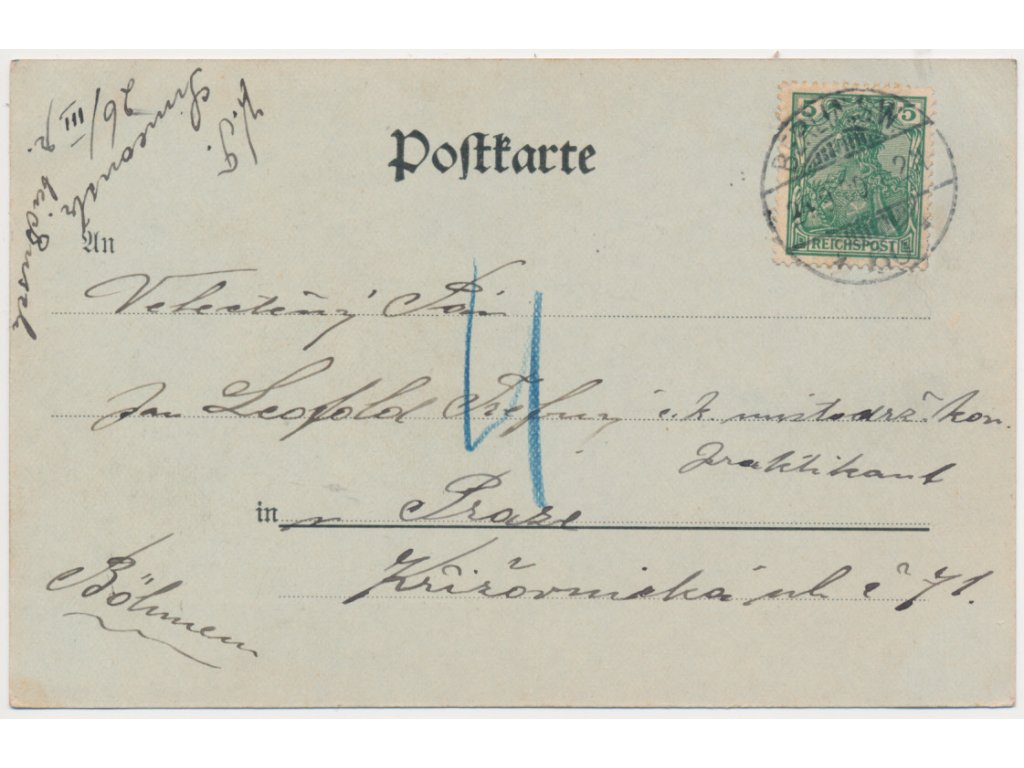 Postkarte
5 5
REICHSPOST
An
Velectěný Pán
Jan Leopold c. k. místodrž. kon.
praktikant
in v Praze
Křižovnická ul. č 71.
Böhmen
4
26/III